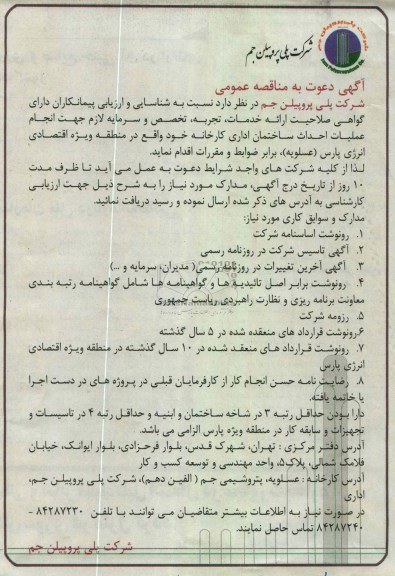 شرکت پلی پروپیلن جم
آگهی دعوت به مناقصه عمومی
شرکت پلی پروپیلن جم در نظر دارد نسبت به شناسایی و ارزیابی پیمانکاران دارای
گواهی صلاحیت ارائه خدمات، تجربه، تخصص و سرمایه لازم جهت انجام
عملیات احداث ساختمان اداری کارخانه خود واقع در منطقه ویژه اقتصادی
انرژی پارس (عسلویه)، برابر ضوابط و مقررات اقدام نماید.
لذا از کلیه شرکت های واجد شرایط دعوت به عمل می آید تا ظرف مدت
۱۰ روز از تاریخ درج آگهی، مدارک مورد نیاز را به شرح ذیل جهت ارزیابی
کارشناسی به آدرس های ذکر شده ارسال نموده و رسید دریافت نمائید.
مدارک و سوابق کاری مورد نیاز:
۱. رونوشت اساسنامه شرکت
۲. آگهی تاسیس شرکت در روزنامه رسمی
۳. آگهی آخرین تغییرات در روزنامه رسمی( مدیران، سرمایه و ...)
۴. رونوشت برابر اصل تائیدیه ها و گواهینامه ها شامل گواهینامه رتبه بندی
معاونت برنامه ریزی و نظارت راهبردی ریاست جمهوری
۵. رزومه شرکت
۶.رونوشت قرارداد های منعقده شده در ۵ سال گذشته
۷. رونوشت قرارداد های منعقد شده در ۱۰ سال گذشته در منطقه ویژه اقتصادی
انرژی پارس
۸. رضایت نامه حسن انجام کار از کارفرمایان قبلی در پروژه های در دست اجرا
یا خاتمه یافته.
دارا بودن حداقل رتبه ۳ در شاخه ساختمان و ابنیه و حداقل رتبه ۴ در تاسیسات و
تجهیزات و سابقه کار در منطقه ویژه پارس الزامی می باشد.
آدرس دفتر مرکزی : تهران، شهرک قدس، بلوار فرحزادی، بلوار ایوانک، خیابان
فلامک شمالی، پلاک۵، واحد مهندسی و توسعه کسب و کار
آدرس کارخانه : عسلویه، پتروشیمی جم ( الفین دهم)، شرکت پلی پروپیلن جم،
اداری
در صورت نیاز به اطلاعات بیشتر متقاضیان می توانند با تلفن ۸۴۲۸۷۲۳۰ -
۸۴۲۸۷۲۴۰ تماس حاصل نمایند.
شرکت پلی پروپیلن جم